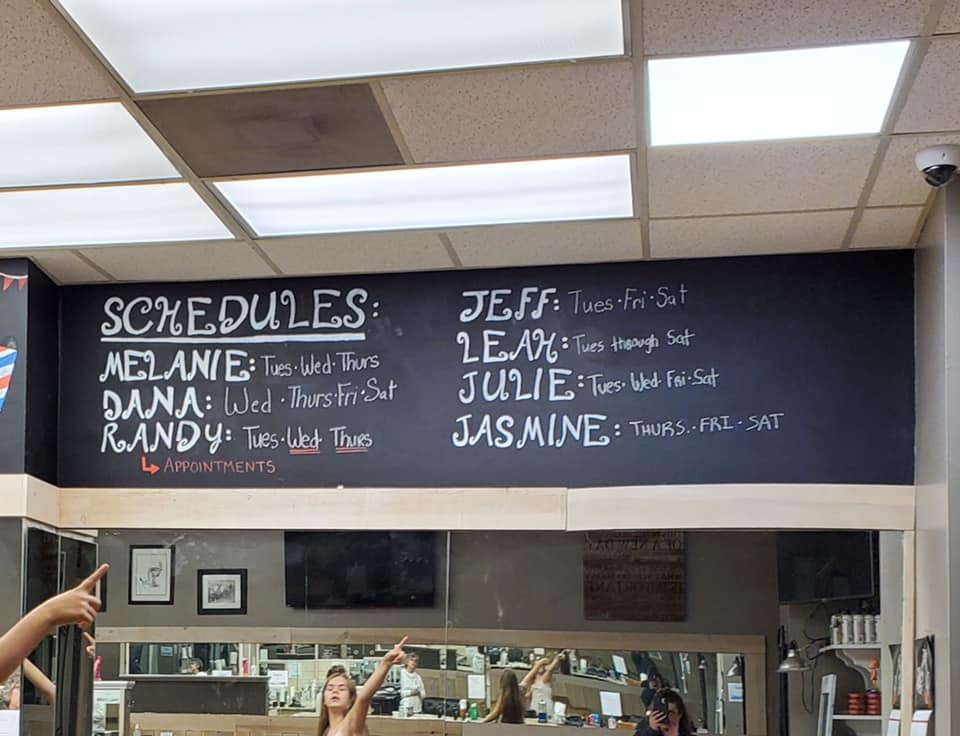 SCHEDULES:
MELANIE: Tues·Wed·Thurs
DANA: Wed·Thurs·Fri·Sat
RANDY: Tues·Wed·Thurs
↳ APPOINTMENTS
JEFF: Tues·Fri·Sat
LEAH: Tues through Sat
JULIE: Tues·Wed·Fri·Sat
JASMINE: THURS.·FRI·SAT